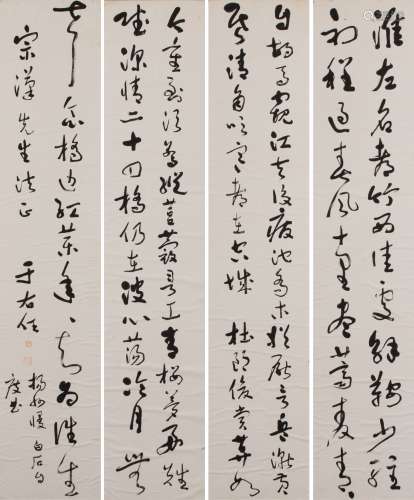 淮左名都竹西佳處解鞍少駐
初程過春風十里盡薺麥青青
自胡馬窺江去後廢池喬木猶厭言兵漸黃
昏清角吹寒都在空城 杜郎俊賞算如
今重到須驚縱豆蔻詞工青樓夢好難
賦深情二十四橋仍在波心蕩冷月無
聲念橋邊紅藥年〻知為誰生
宗漢先生法正 于右任
揚州慢 白石自
度曲